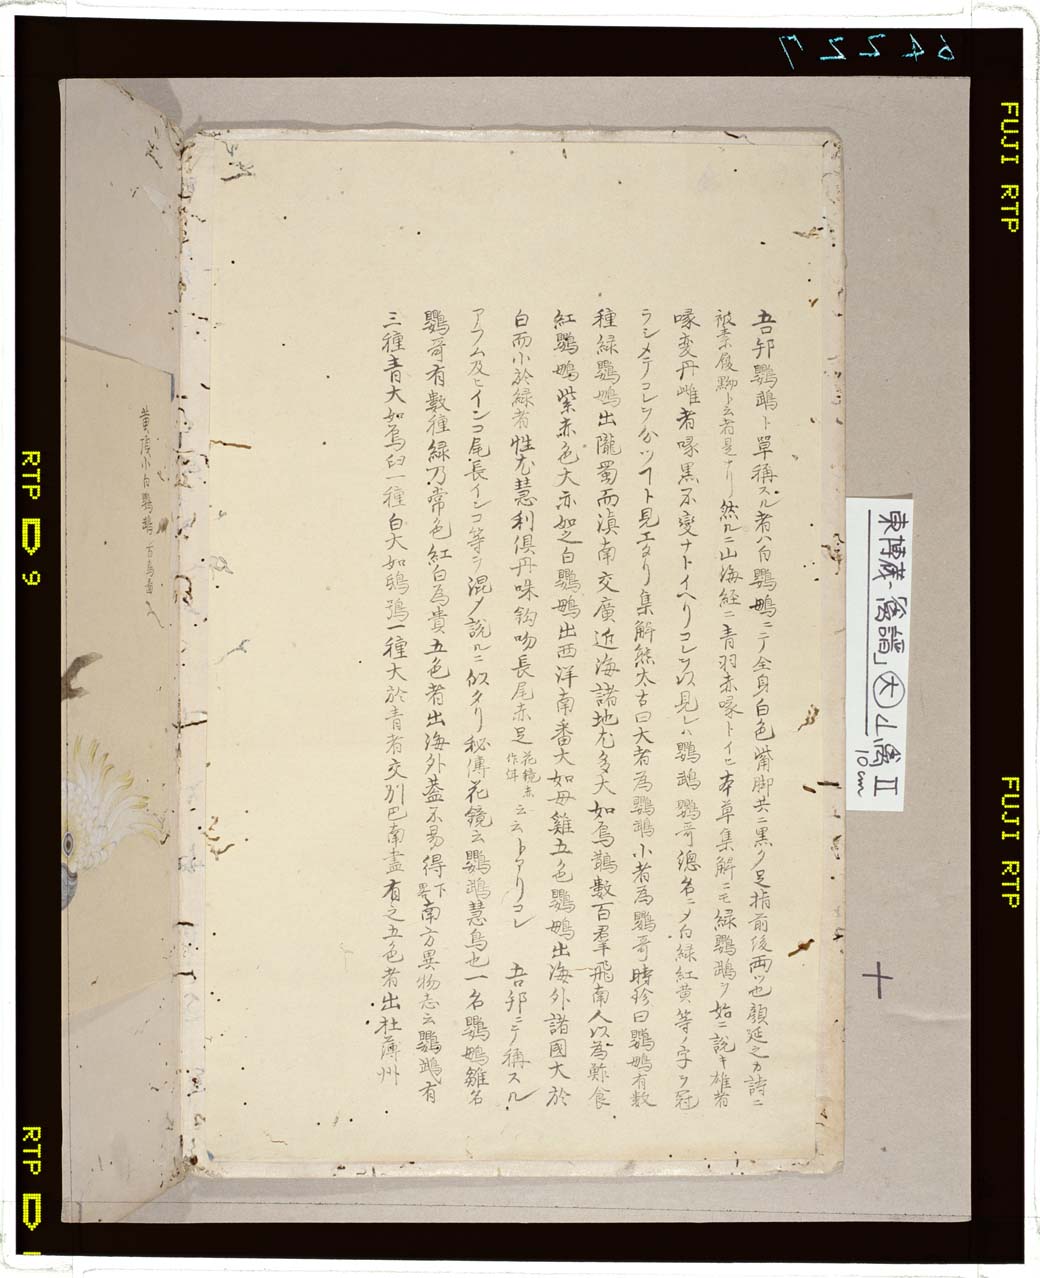 吾邦鸚鵡ト單稱スル者ハ白鸚鴟ニテ全身白色觜脚共ニ黒ク足指前後両ツ也顔延之カ詩ニ
被素履黝ト云者是ナリ然ルニ山海経ニ青羽赤喙トイヒ本草集解ニモ緑鸚鵡ヲ始ニ説キ雄者
喙変丹雌者喙黒不變ナトイヘリコレヲ以見レハ鸚鵡鸚哥總名ニメ白緑紅黄等ノ字ヲ冠
ラシメテコレヲ分ツヿト見エタリ集解熊太古曰大者為鸚鵡小者為鸚哥時珍曰鸚鴟有数
種緑鸚鴟出隴蜀而滇南交廣近海諸地尤多大如烏鵲數百羣飛南人以為鮓食
紅鸚鴟紫赤色大亦如之白鸚鴟出西洋南番大如母雞五色鸚鴟出海外諸國大於
白而小於緑者性尤慧利俱丹咮鈎吻長尾赤足花鏡赤作駢云云トアリコレ 吾邦ニテ稱スル
アフム及ヒインコ尾長インコ等ヲ混メ説ルニ似タリ秘傳花鏡云鸚鵡慧鳥也一名鸚鴟雛名
鸚哥有數種緑乃常色紅白為貴五色者出海外蓋不易得下畧南方異物志云鸚鵡有
三種青大如烏臼一種白大如鴟鴞一種大於青者交州巴南盡有之五色者出杜薄州
東博蔵「禽譜」大 山禽Ⅱ
10cm
FUJI RTP
FUJI RTP
RTP D 9
RTP D
64227